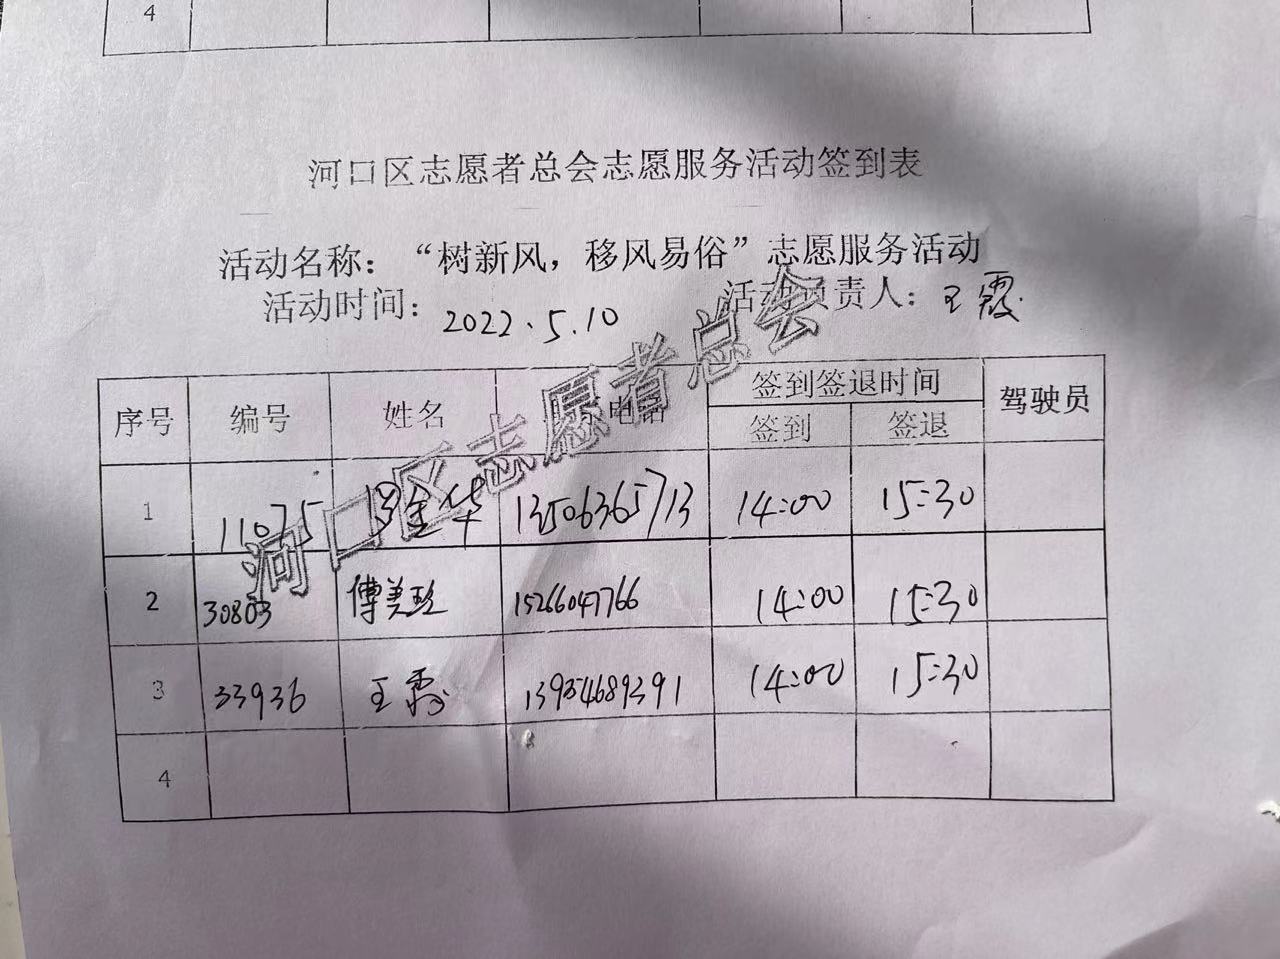 4
河口区志愿者总会志愿服务活动签到表
活动名称：“树新风，移风易俗”志愿服务活动
活动时间：2022.5.10 活动负责人：王霞
序号 编号 姓名 电话 签到签退时间 驾驶员
签到 签退
1 11075 罗金华 13506365713 14:00 15:30
2 30803 傅美玲 15266047766 14:00 15:30
3 33936 王霞 14:00 15:30
4
河口区志愿者总会